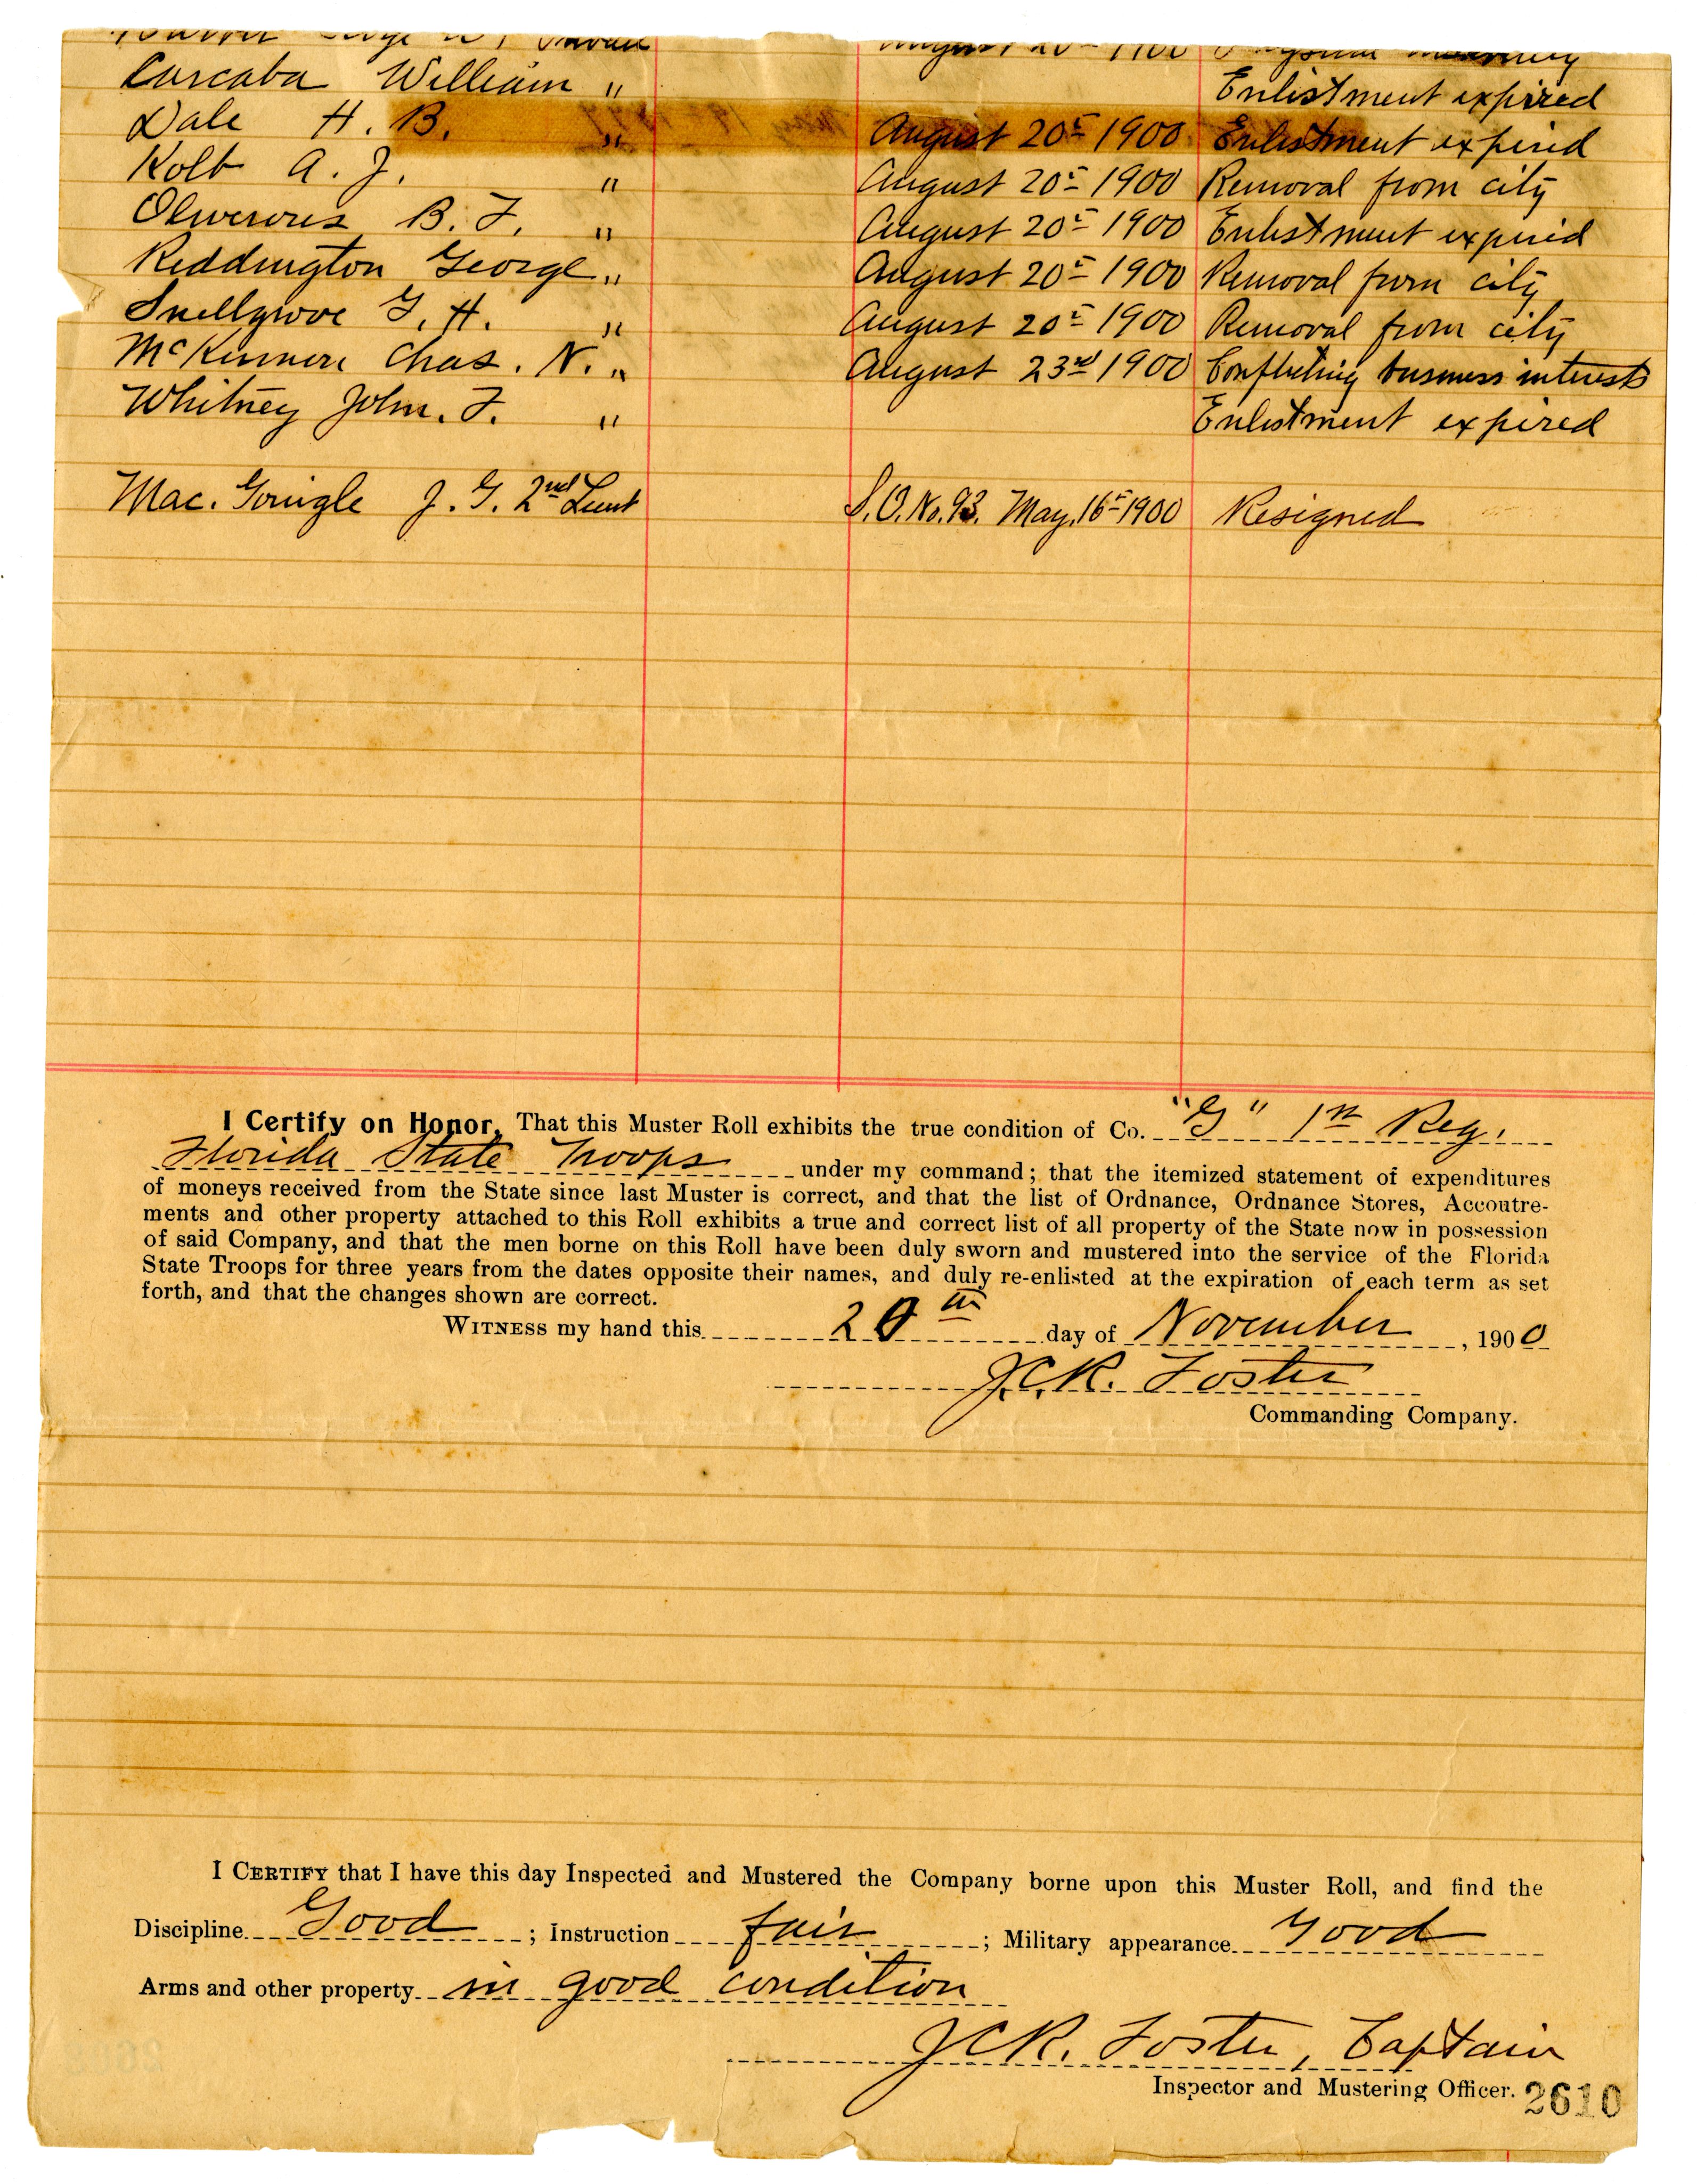 August 20 1900
Carcaba William " Enlistment expired
Dale H. B. " August 20" 1900 Enlistment expired
Kolb A. J. " August 20" 1900 Removal from city
B. F. " August 20" 1900 Enlistment expired
Reddington George " August 20" 1900 Removal from city
Snellgrove G. H. " August 20" 1900 Removal from city
McKinnon Chas. N. " August 23rd 1900 Conflicting business interests
Whitney John. F. " Enlistment expired
Mac. Gonigle J. G. 2nd Lieut S.O. No. 93. May. 16" 1900 Resigned
I Certify on Honor, That this Muster Roll exhibits the true condition of Co. "G" 1st Reg.
Florida State Troops under my command; that the itemized statement of expenditures
of moneys received from the State since last Muster is correct, and that the list of Ordnance, Ordnance Stores, Accoutre-
ments and other property attached to this Roll exhibits a true and correct list of all property of the State now in possession
of said Company, and that the men borne on this Roll have been duly sworn and mustered into the service of the Florida
State Troops for three years from the dates opposite their names, and duly re-enlisted at the expiration of each term as set
forth, and that the changes shown are correct.
WITNESS my hand this 20th day of November, 1900
J.C.R. Foster
Commanding Company.
I CERTIFY that I have this day Inspected and Mustered the Company borne upon this Muster Roll, and find the
Discipline Good; Instruction fair; Military appearance Good
Arms and other property in good condition
JCR. Foster, Captain
Inspector and Mustering Officer. 2610